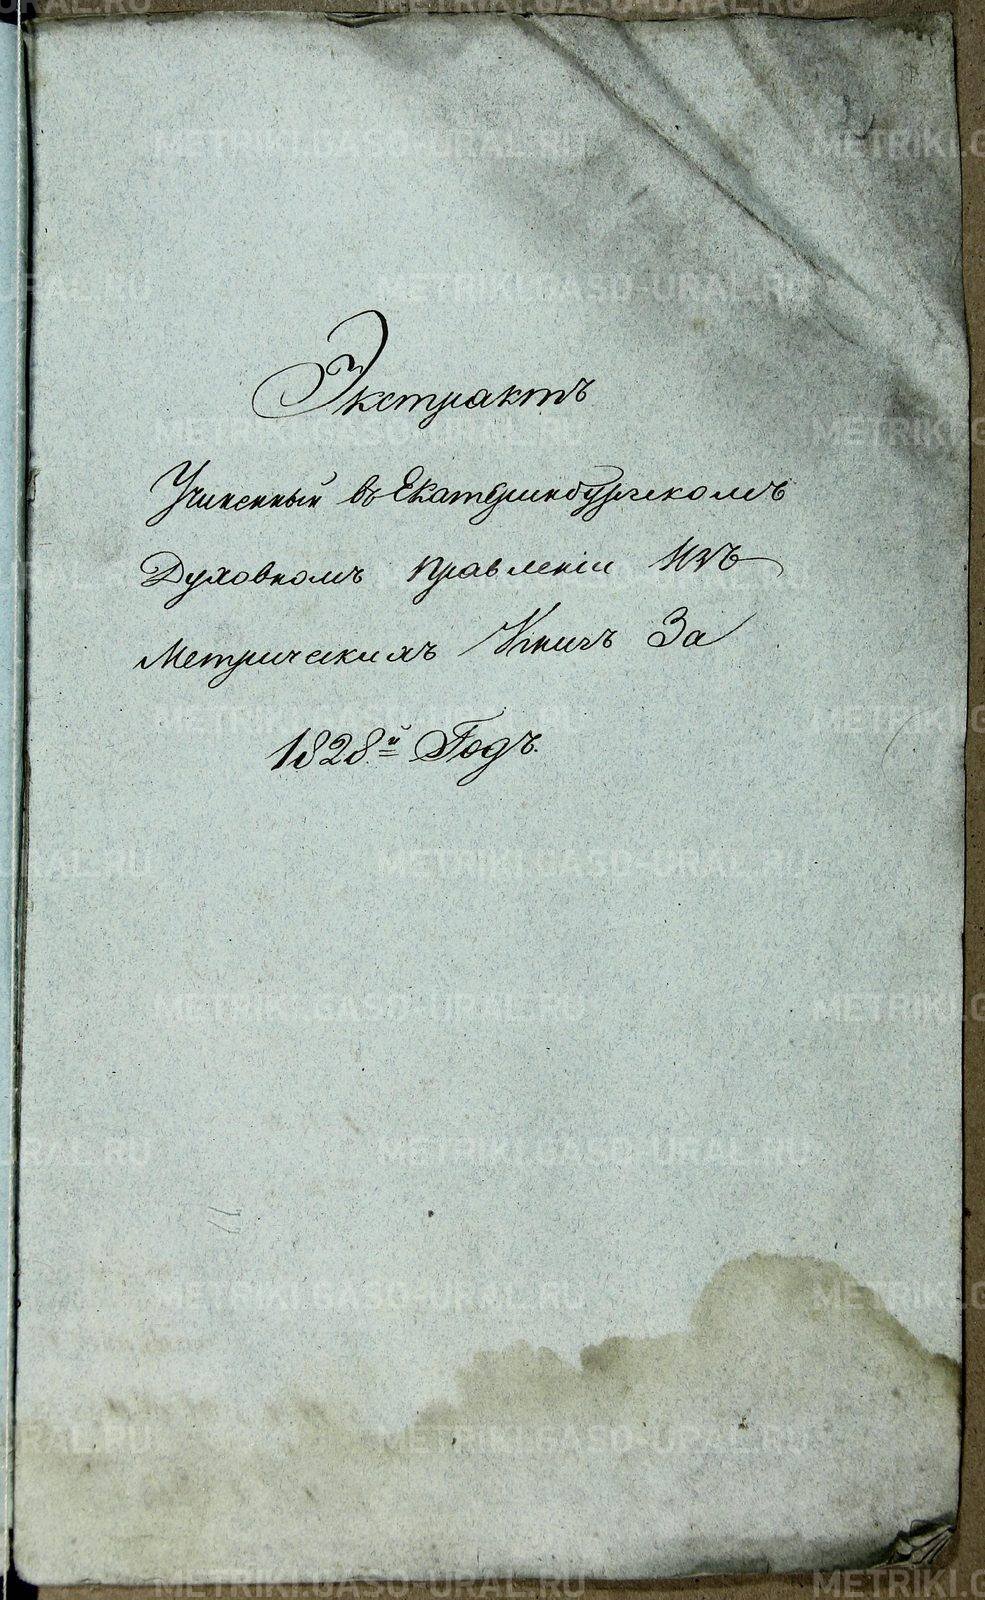 Экстрактъ
Учиненный въ Екатеринбургскомъ
Духовномъ Правленіи Изъ
Метрическихъ Книгъ За
1828.й Годъ.